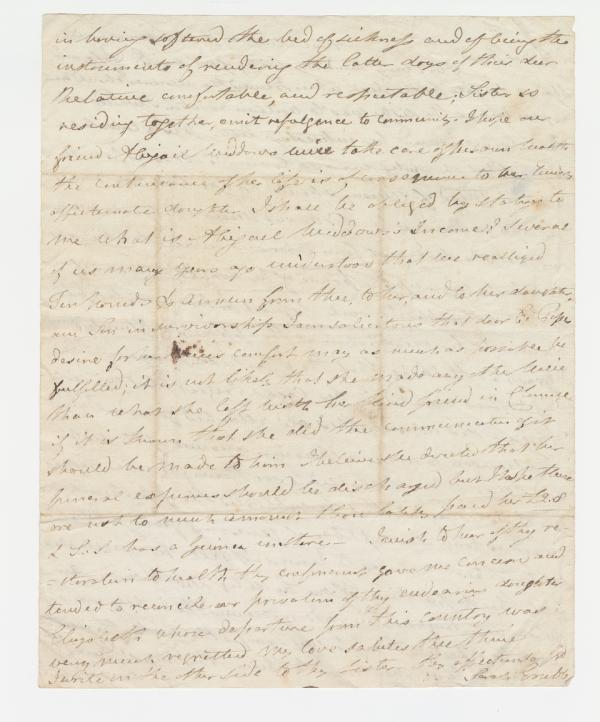 in having softened the bed of sickness and of being the
instruments of rendering the latter days of their dear
Relative comfortable, and respectable; Sister so
residing together, omit refulgence to community. I hope our
friend Abigail will take care of her own health
the continuance of her life is of consequence to her
affectionate daughter I shall be obliged by stating to
me what is Abigael Income? Several
of us many years ago understood that we realized
Ten Pounds annum from thee, to her, and to her daughter,
in survivorship I am solicitous that dear
desire for comfort may as much as possible be
fulfilled; it is not likely that she made any other
than what she left with her kind friend in
if it is known that she did the communication
should be made to him I believe she directed that her
funeral expenses should be discharged but I hope there
are not to much amount thou lately paid her
has a Guinea in store – I wish to hear of thy re-
-storation to health thy confinement gave me concern and
tended to reconcile our privation of thy endearing daughter
Elizabeth whose departure from this Country was
very much regretted my love salutes thee
I write on the other side to thy Sister thy affectionate
Sarah Grubb